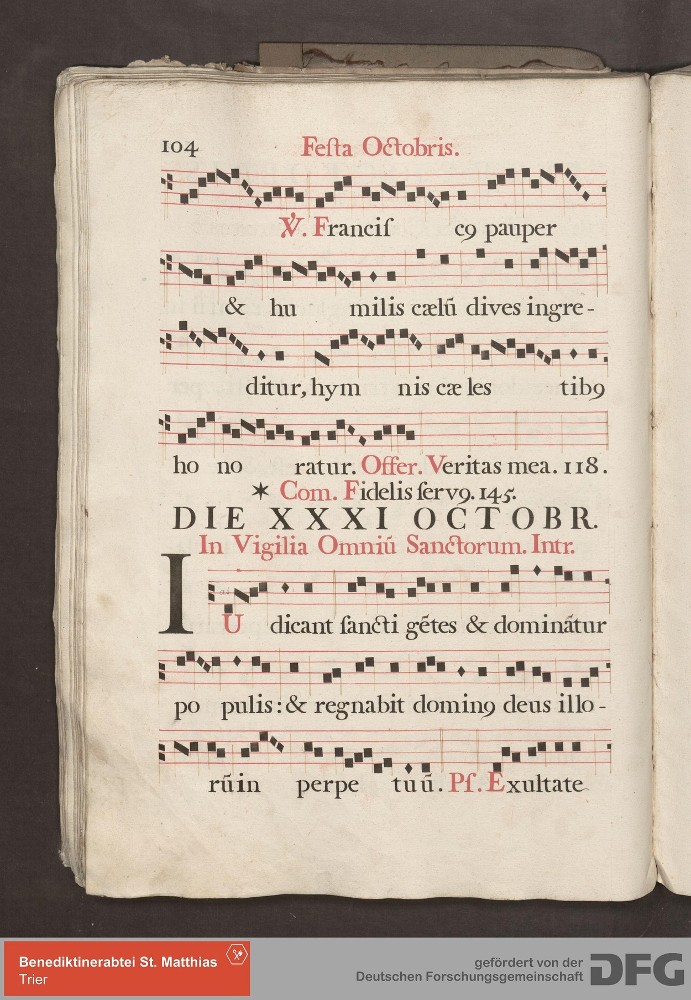 104 Feſta Octobris.
℣. Franciſ cꝯ pauper
& hu milis cælū dives ingre-
ditur, hym nis cæ les tibꝯ
ho no ratur. Offer. Veritas mea. 118.
✶ Com. Fidelis ſervꝯ. 145.
DIE XXXI OCTOBR.
In Vigilia Omniū Sanctorum. Intr.
IU dicant ſancti gētes & dominātur
po pulis: & regnabit dominꝯ deus illo-
rū in perpe tuū. Pſ. Exultate
Benediktinerabtei St. Matthias
Trier
gefördert von der
Deutschen Forschungsgemeinschaft DFG